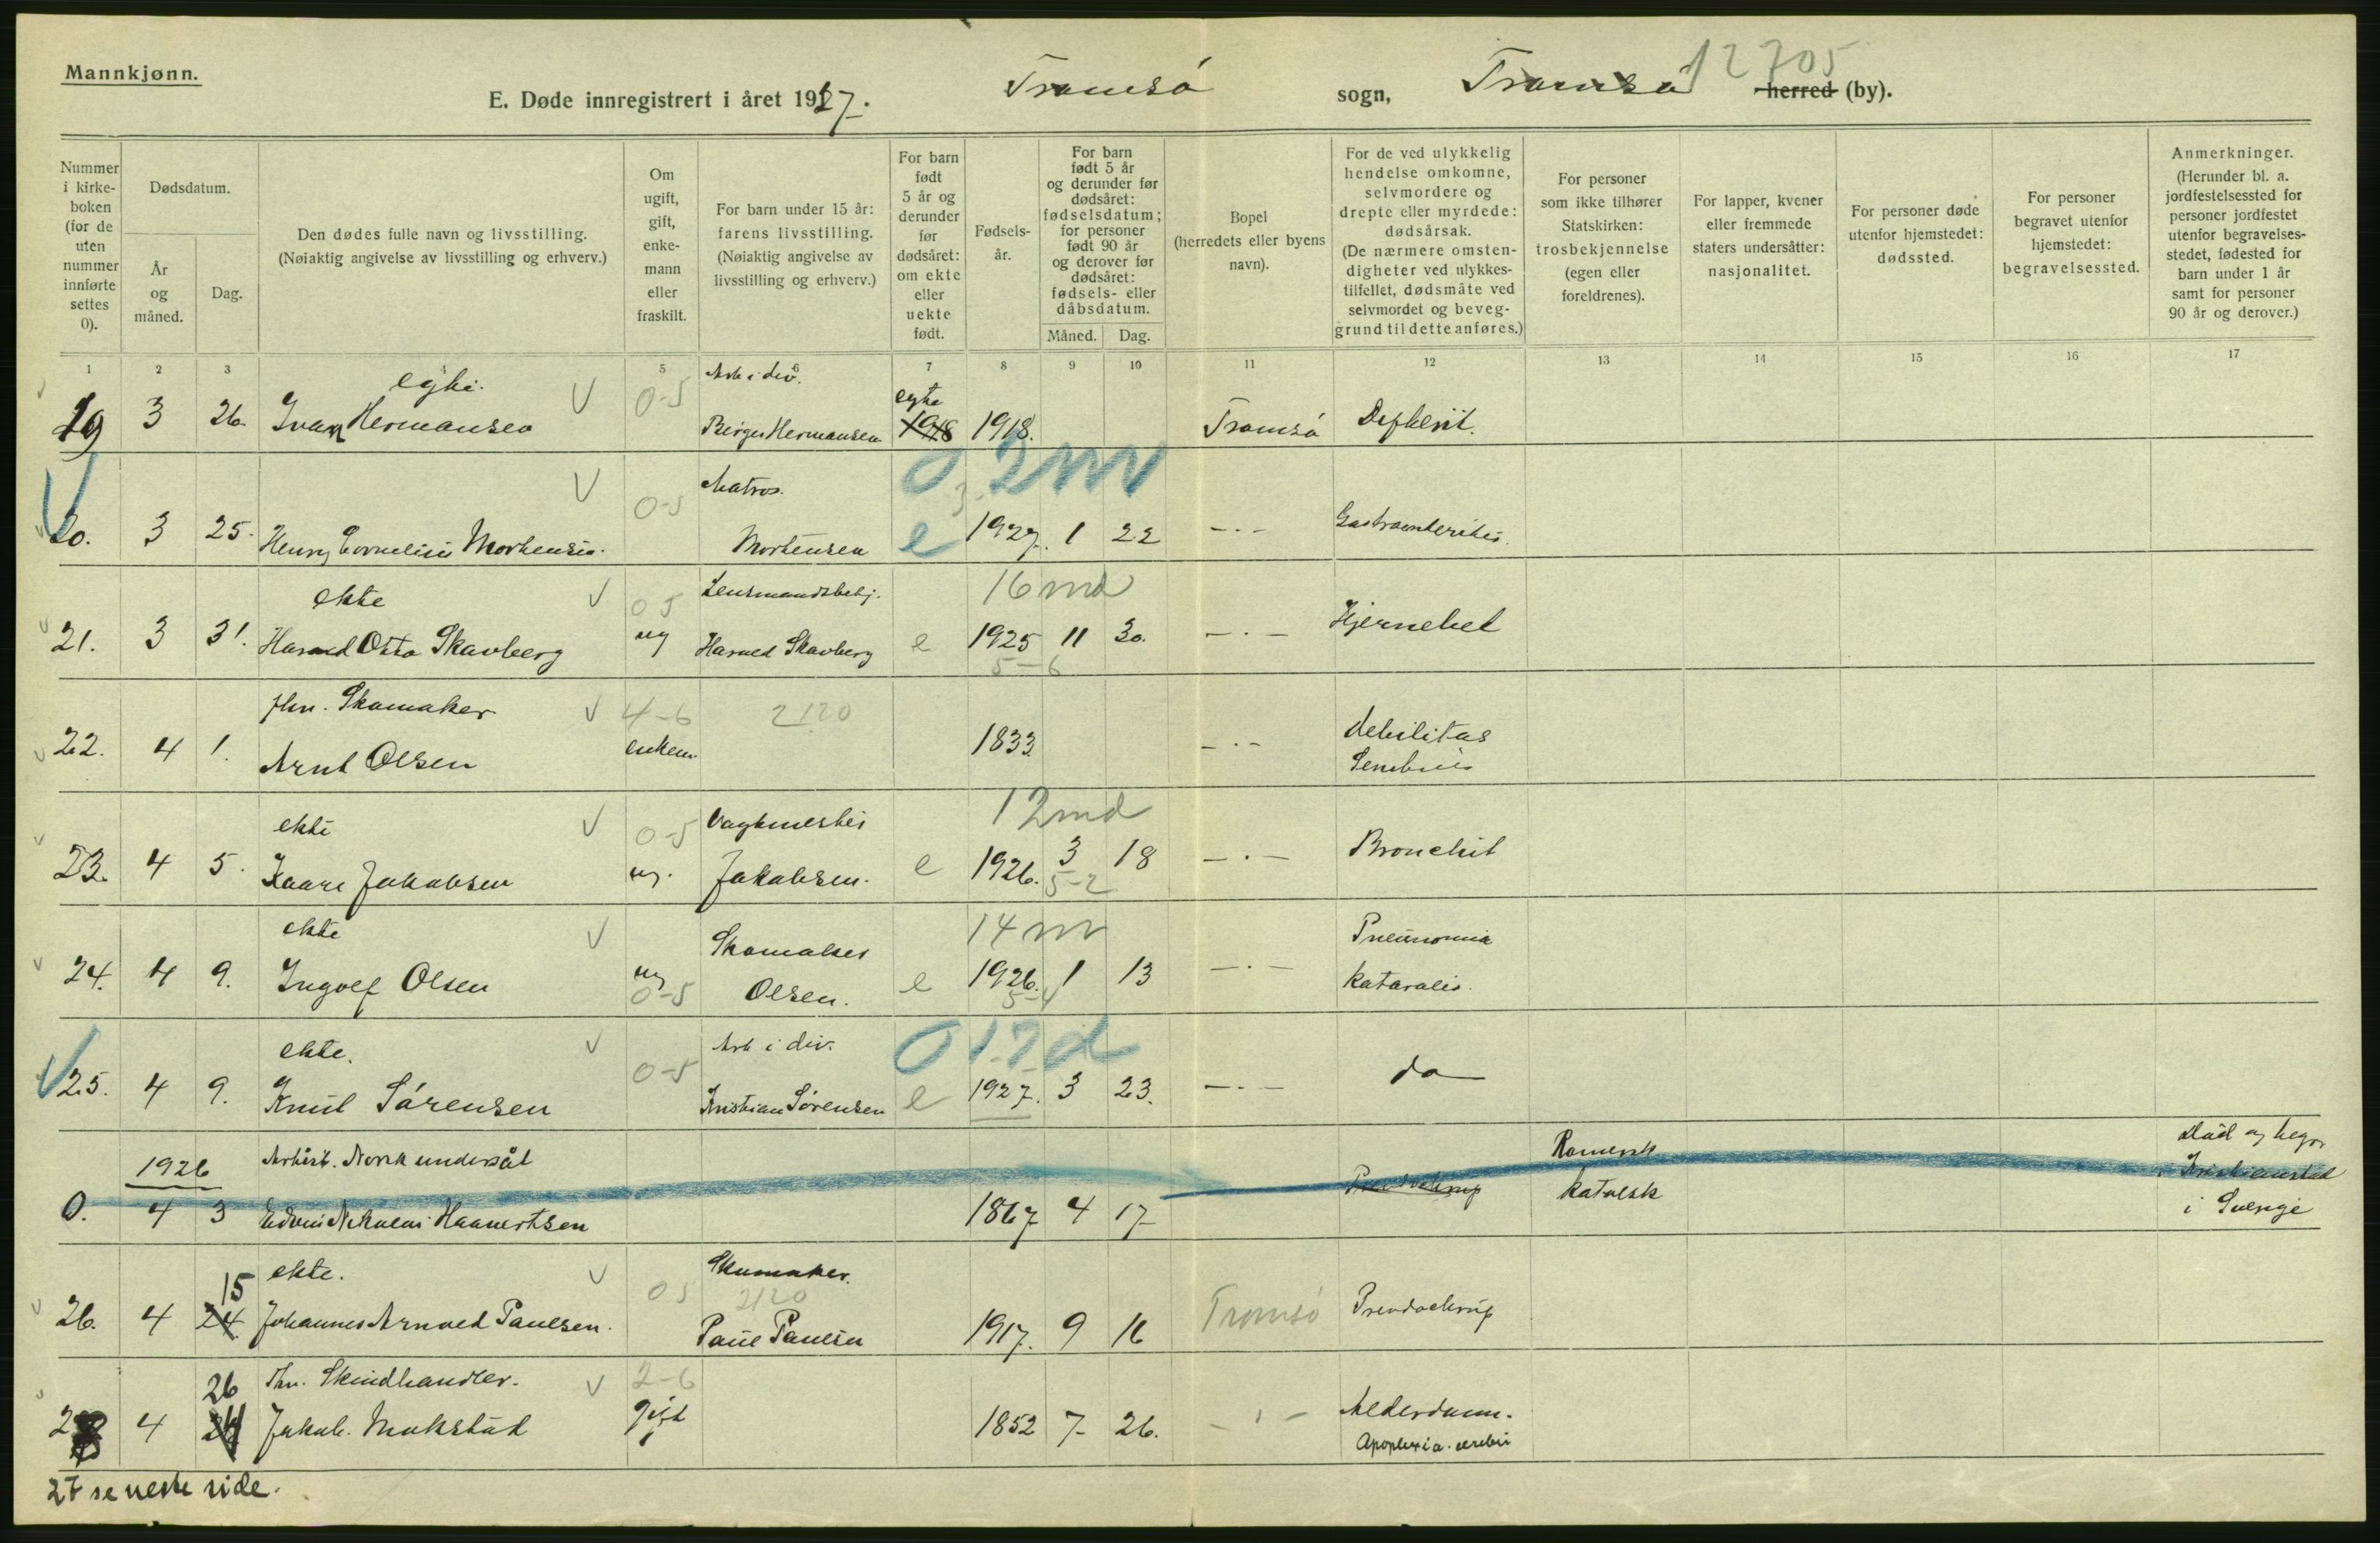 Mannkjønn.
12705
E. Døde innregistrert i året 1927.
Tromsø sogn, Tromsø herred (by).
Nummer i kirke-boken (for de uten nummer innførte settes 0).
Dødsdatum.
År og måned.
Dag.
Den dødes fulle navn og livsstilling.
(Nøiaktig angivelse av livsstilling og erhverv.)
Om ugift, gift, enke-mann eller fraskilt.
For barn under 15 år: farens livsstilling.
(Nøiaktig angivelse av livsstilling og erhverv.)
For barn født 5 år og derunder før dødsåret: om ekte eller uekte født.
Fødsels-år.
For barn født 5 år og derunder før dødsåret: fødselsdatum; for personer født 90 år og derover før dødsåret: fødsels- eller dåbsdatum.
Måned. Dag.
Bopel (herredets eller byens navn).
For de ved ulykkelig hendelse omkomne, selvmordere og drepte eller myrdede: dødsårsak.
(De nærmere omsten-digheter ved ulykkes-tilfellet, dødsmåte ved selvmordet og beveg-grund til dette anføres.)
For personer som ikke tilhører Statskirken: trosbekjennelse (egen eller foreldrenes).
For lapper, kvener eller fremmede staters undersåtter: nasjonalitet.
For personer døde utenfor hjemstedet: dødssted.
For personer begravet utenfor hjemstedet: begravelsessted.
Anmerkninger.
(Herunder bl. a. jordfestelsessted for personer jordfestet utenfor begravelses-stedet, fødested for barn under 1 år samt for personer 90 år og derover.)
1 2 3 4 5 6 7 8 9 10 11 12 13 14 15 16 17
egte. V 0-5 Arb i div. egte
19 3 26. Ivar Hermansen Birger Hermansen 1918 1918. Tromsø Difterit.
V 0-5 Matros. 0 2 m
20. 3 25. Henry Cornelius Mortensen. Mortensen e 1927. 1 22 -.- Gastroenterites.
ekte V 0 5 Lensmandsbetj. 16 md
21. 3 31. Harald Otto Skavberg ug Harald Skavberg e 1925 11 30. -.- Hjernebet
5-6
fhv. Skomaker V 4-6 2120
22. 4 1. Arnt Olsen enkem. 1833 -.- debilitas
Senilis
ekte V 0-5 Vagtmester 12 md
23. 4 5. Kaare Jakobsen ug. Jakobsen. e 1926. 3 18 -.- Bronchit
5-2
ekte V Skomaker 14 m Pneumonia
24. 4 9. Ingolf Olsen ug 0-5 Olsen. e 1926. 1 13 -.- Kataralis.
5-4
ekte. V 0-5 Arb i div. 0 17 d
25. 4 9. Knut Sørensen Kristian Sørensen e 1927. 3 23. -.- do
1926 Norsk undersåt Romersk Død og begr.
0. 4 3 1867 4 17 katolsk i Kristianstad
i Sverige
ekte. V 0 5 Skomaker. 2120
26. 4 24 15 Johannes Arnold Paulsen. Paul Paulsen 1917. 9 16 Tromsø Pseudocrup
fhv. Skindhandler. V 2-6
28 4 24 26 Jakob Mokstad gift 1852 7 26. -.- Alderdom.
Apoplexia cerebri
27 se neste side.